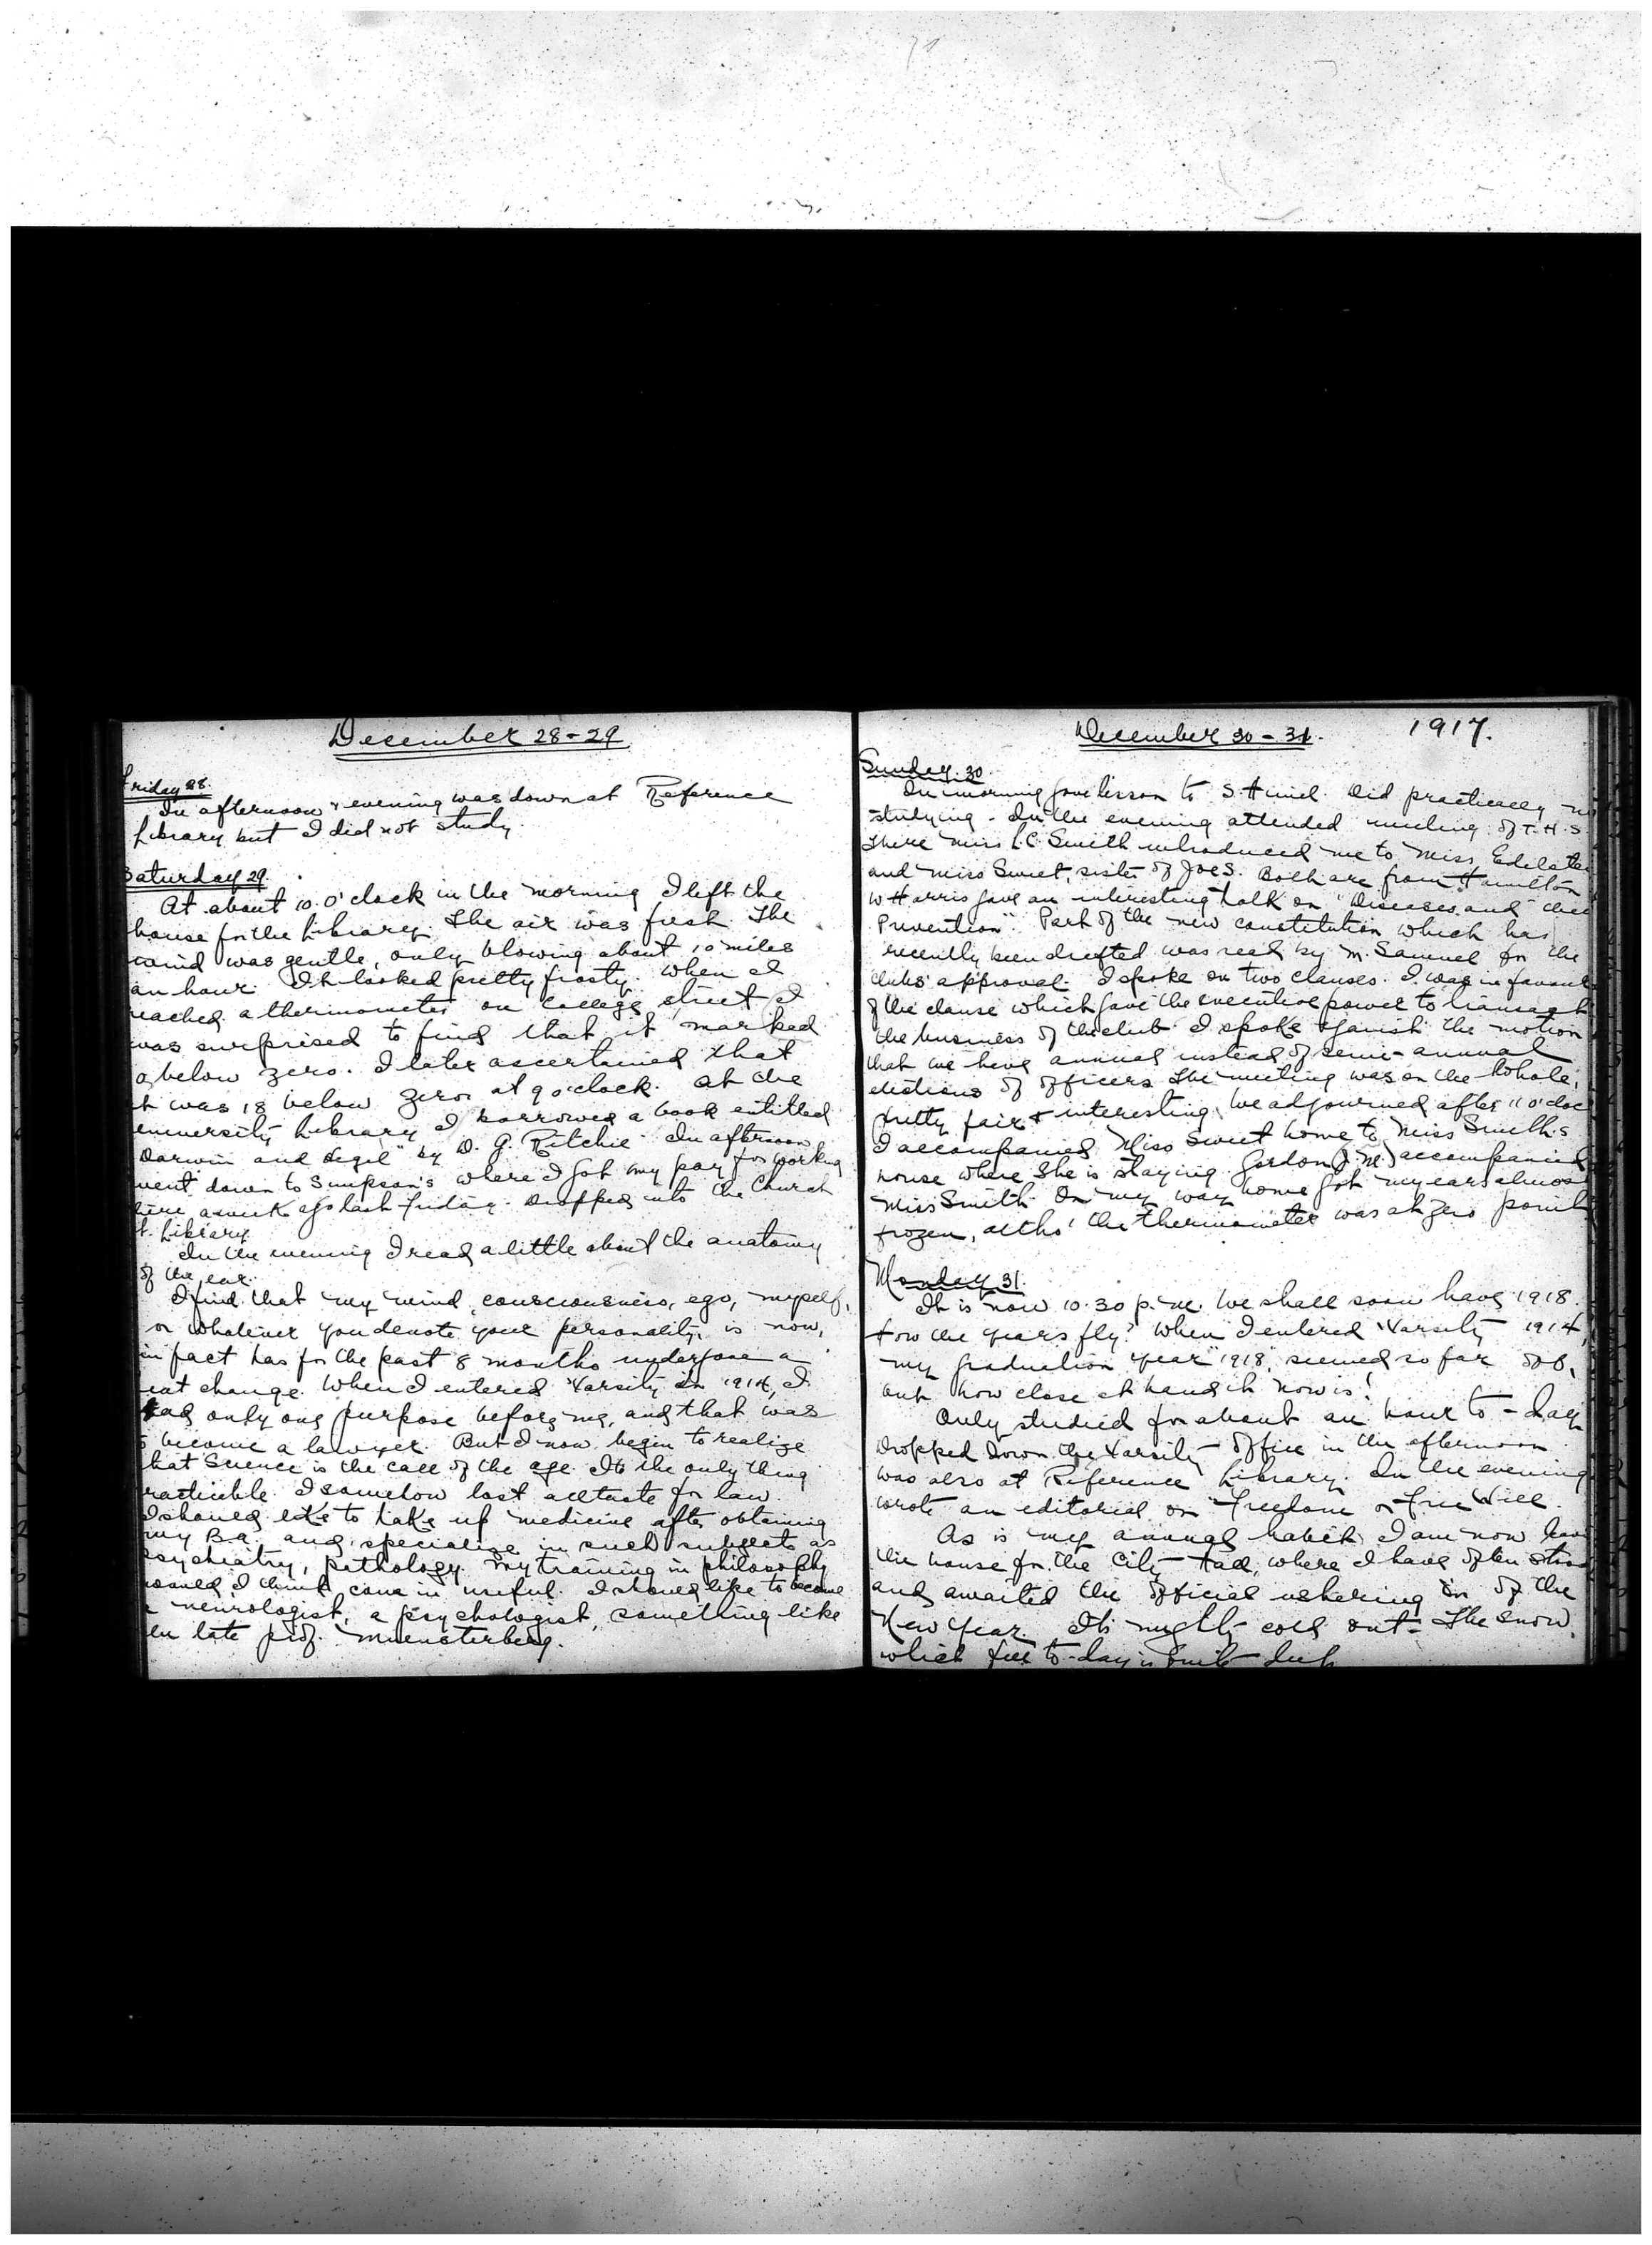 December 28-29
Friday 28.
In afternoon & evening was down at Reference
Library but I did not study.
Saturday 29.
At about 10.0'clock in the morning I left the
house for the Library. The air was fresh. The
wind was gentle, only blowing about 10 miles
an hour. It looked pretty frosty. When I
reached a thermometer on College street I
was surprised to find that it marked
below zero. I later ascertained that
it was 18 below zero at 9 o'clock. At the
University Library I borrowed a book entitled
"Darwin and Hegel" by D. G. Ritchie. In afternoon
went down to Simpson's where I got my pay for working
here a week ago last Friday. Dropped into the Church
t. Library.
In the evening I read a little about the anatomy
of the ear.
I find that my mind, consciousness, ego, myself,
or whatever you denote your personality, is now,
in fact has for the past 8 months undergone a
eat change. When I entered 'Varsity in 1914, I
had only one purpose before me, and that was
to become a lawyer. But I now begin to realize
that Science is the call of the age. Its the only thing
racticible. I somehow lost all taste for law.
I should like to take up medicine after obtaining
my B.A. and specialize in such subjects as
psychiatry, pathology. My training in philosophy
would I think come in useful. I should like to become
a neurologist, a psychologist, something like
the late prof. Muensterberg.
December 30-31. 1917.
Sunday. 30.
In morning gave lesson to S. Did practically no
studying - In the evening attended meeting of T.H.S.
There Miss L.C. Smith introduced me to Miss
and Miss Sweet, sister of Joe S. Both are from Hamilton
W Harris gave an interesting talk on "Diseases and their
Prevention". Part of the new constitution which has
recently been drafted was read by M. Samuel for the
clubs' approval. I spoke on two clauses. I was in favour
of the clause which gave the executive power to transact
the business of the club. I spoke against the motion
that we have annual instead of semi-annual
elections of officers. The meeting was on the whole,
pretty fair & interesting. We adjourned after 11 o'cloc
I accompanied Miss Sweet home to Miss Smith's
house where she is staying. Gordon (J.M.) accompanied
Miss Smith. On my way home got my ears almost
frozen, altho' the thermometer was at zero point.
Monday 31.
It is now 10.30 p.m. We shall soon have 1918.
How the years fly! When I entered 'Varsity 1914,
my graduation year "1918", seemed so far off,
but how close at hand it now is!
Only studied for about an hour to-day
Dropped down the Varsity office in the afternoon.
Was also at Reference Library. In the evening
wrote an editorial on "Freedom or Free Will.
As is my annual habit I am now leav
the house for the City Hall, where I have often stood
and awaited the official ushering in of the
New Year. Its mighty cold out - The snow
which fell to-day is quite deep